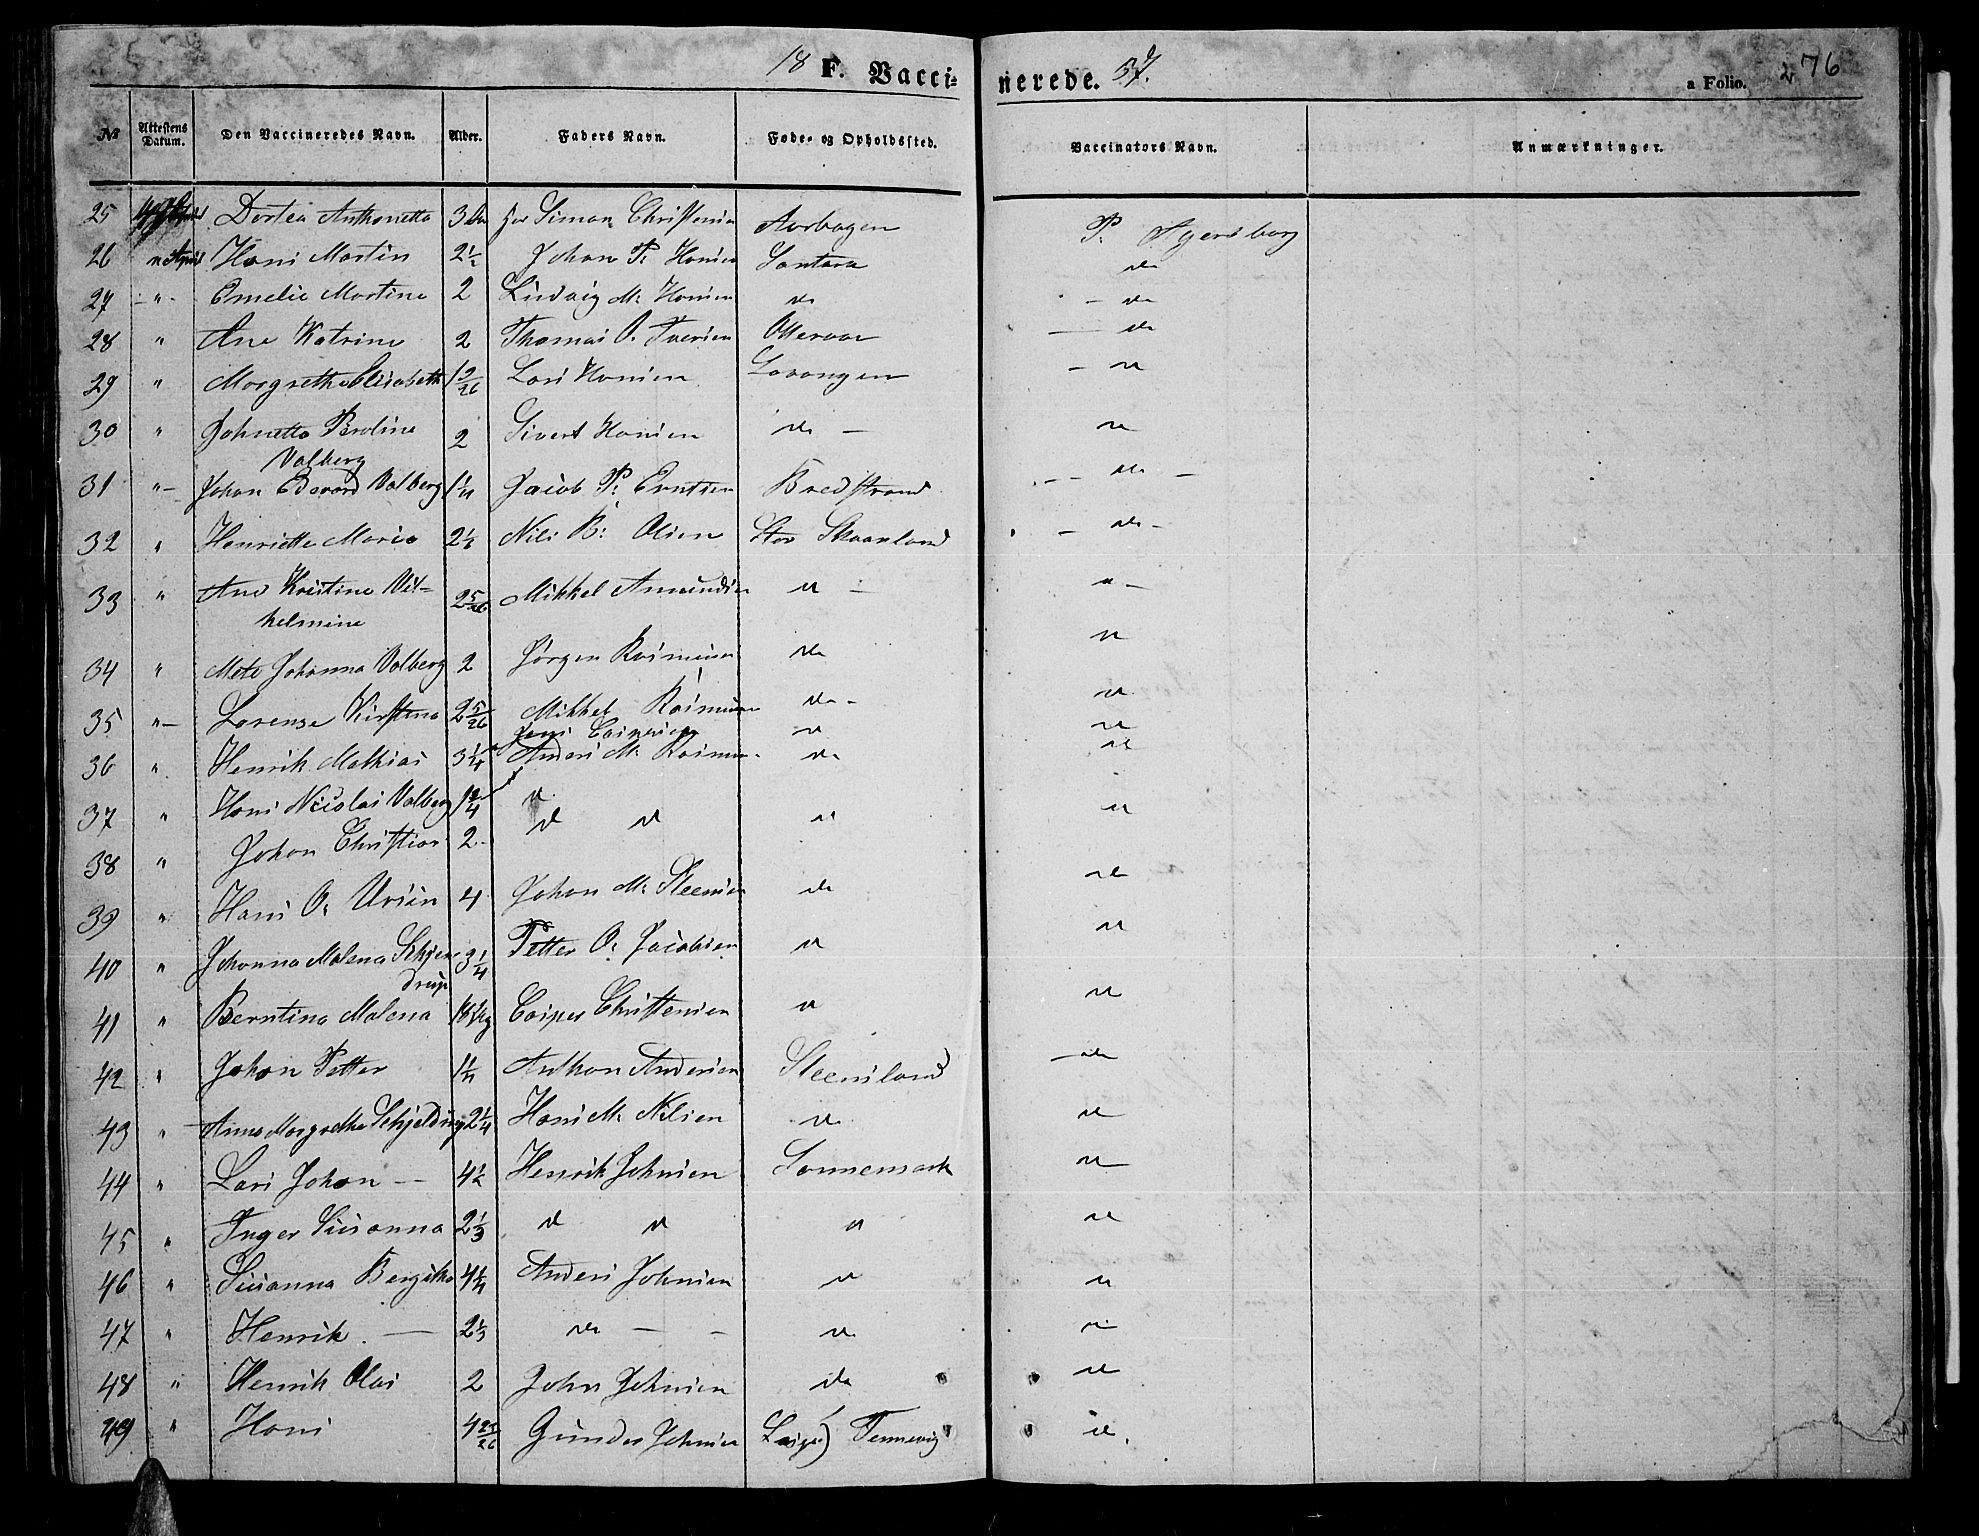 18 F. Vacci= nerede. 37. a Folio. 276
No Attestens Datum. Den Vaccineredes Navn. Alder. Faders Navn. Føde- og Opholdssted. Vaccinators Navn. Anmærkninger.
25 Dortea Anthonetta 3 Simon Christensen Aarbogen P.
26 " April Hans Martin 2½ Johan P. Hansen do
27 " Emelie Martine 2 Ludvig M. Hansen do do
28 " Ane Katrine 2 Thomas O. do
29 " Margrethe Elisabeth Lars Hansen Lavangen do
30 " Johnetta Broline 2 Sivert Hansen do do
Valberg
31 " Johan Edvard Valberg 1¼ Jacob P. Bredstrand do
32 " Henriette Marie Nils B: Olsen Stor Skaanland do
33 " Ane Kristine Vil= 2 5/26 Mikkel Amundsen do do
helmine
34 " Mete Johanna Valberg 2 Jørgen Rasmussen do do
35 " Lorense Kirstina 2 5/26 Mikkel Rasmussen do do
Jens do do
36 " Henrik Mathias 3¼ Anders M. do do
37 " Hans Nicolai Valberg do
38 " Johan Christian 2 do do do do
39 " Hans O. 4 Johan M. Steensen do do
40 " Johanna Malena Schjel= 3¼ Petter O. Jacobsen do do
drup
41 " Berntina Malena Casper Christensen do do
42 " Johan Petter 1¼ Anthon Andersen Steensland do
43 " Anne Margrethe Schjeldrup 2¼ Hans M. Nilsen do do
44 " Lars Johan 4½ Henrik Johnsen Sannemark do
45 " Inger Susanna 2⅓ do do do do
46 " Susanna Bergitha 4¼ Anders Johnsen do do
47 " Henrik 2⅓ do do do
48 " Henrik Olai 2 John Johnsen do do
49 " Hans Gunder Johnsen Tennevig do.